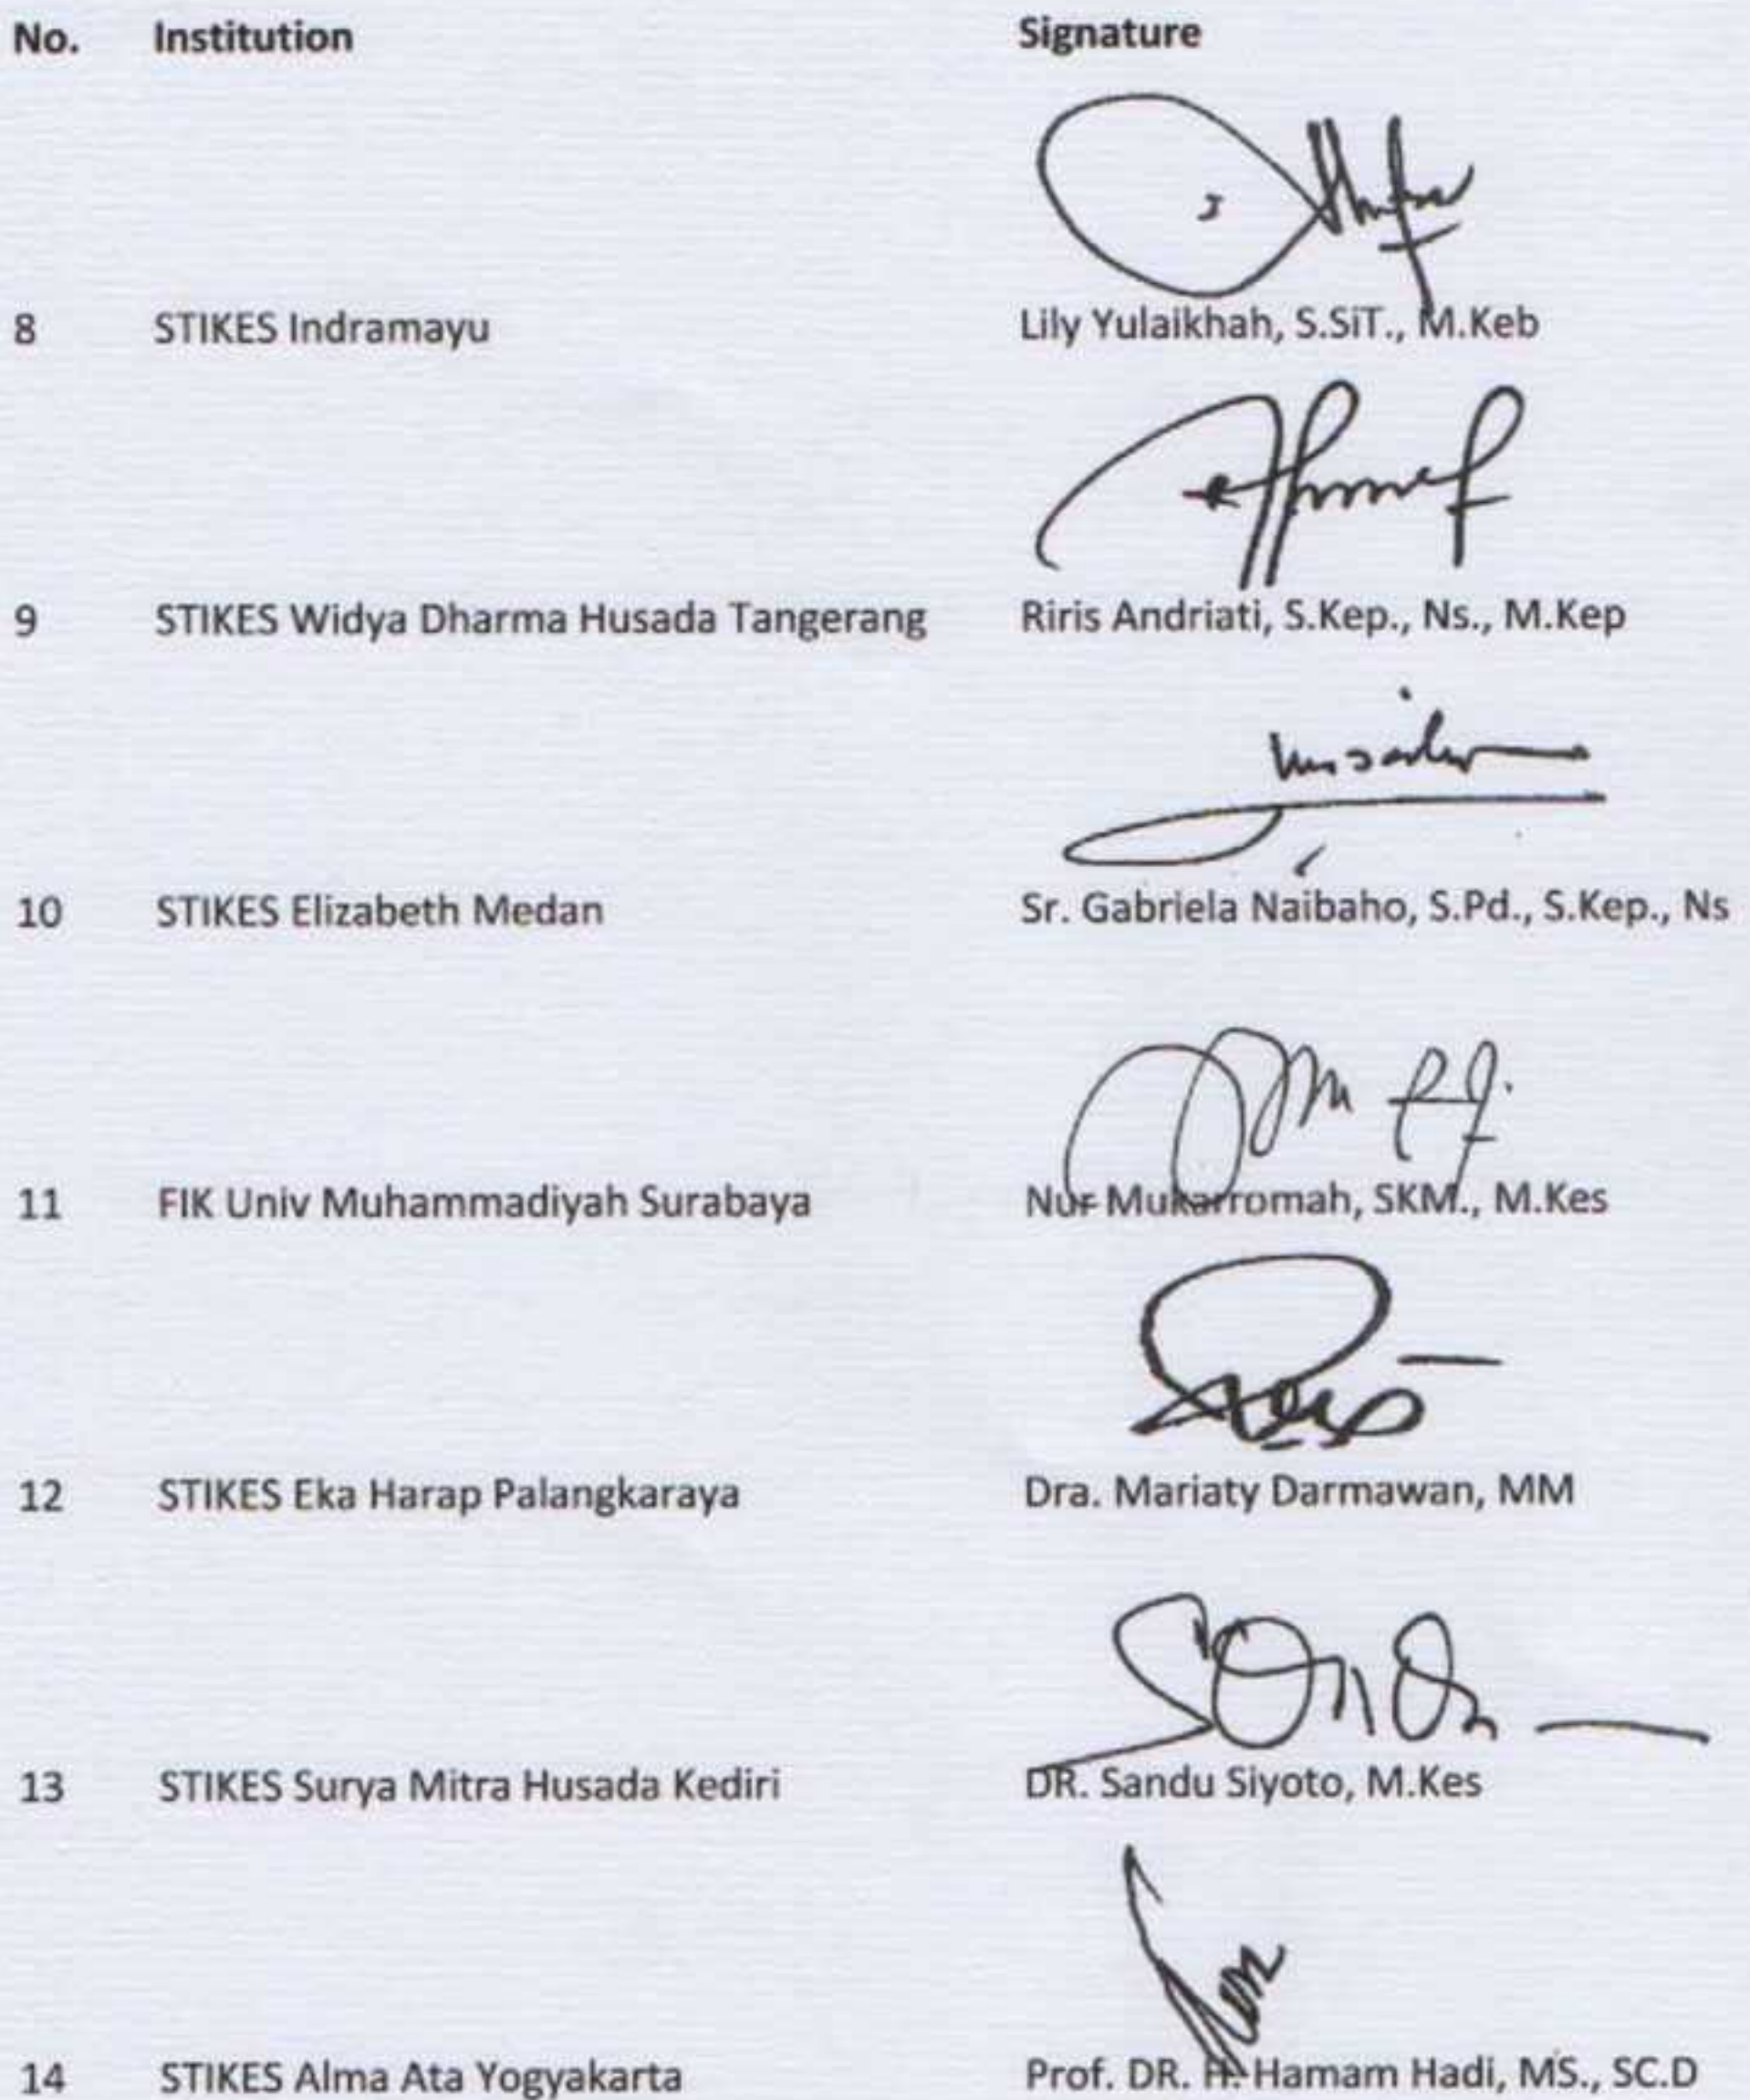 No. Institution Signature
8 STIKES Indramayu Lily Yulaikhah, S.SiT., M.Keb
9 STIKES Widya Dharma Husada Tangerang Riris Andriati, S.Kep., Ns., M.Kep
10 STIKES Elizabeth Medan Sr. Gabriela Naibaho, S.Pd., S.Kep., Ns
11 FIK Univ Muhammadiyah Surabaya Nur Mukarromah, SKM., M.Kes
12 STIKES Eka Harap Palangkaraya Dra. Mariaty Darmawan, MM
13 STIKES Surya Mitra Husada Kediri DR. Sandu Siyoto, M.Kes
14 STIKES Alma Ata Yogyakarta Prof. DR. H. Hamam Hadi, MS., SC.D